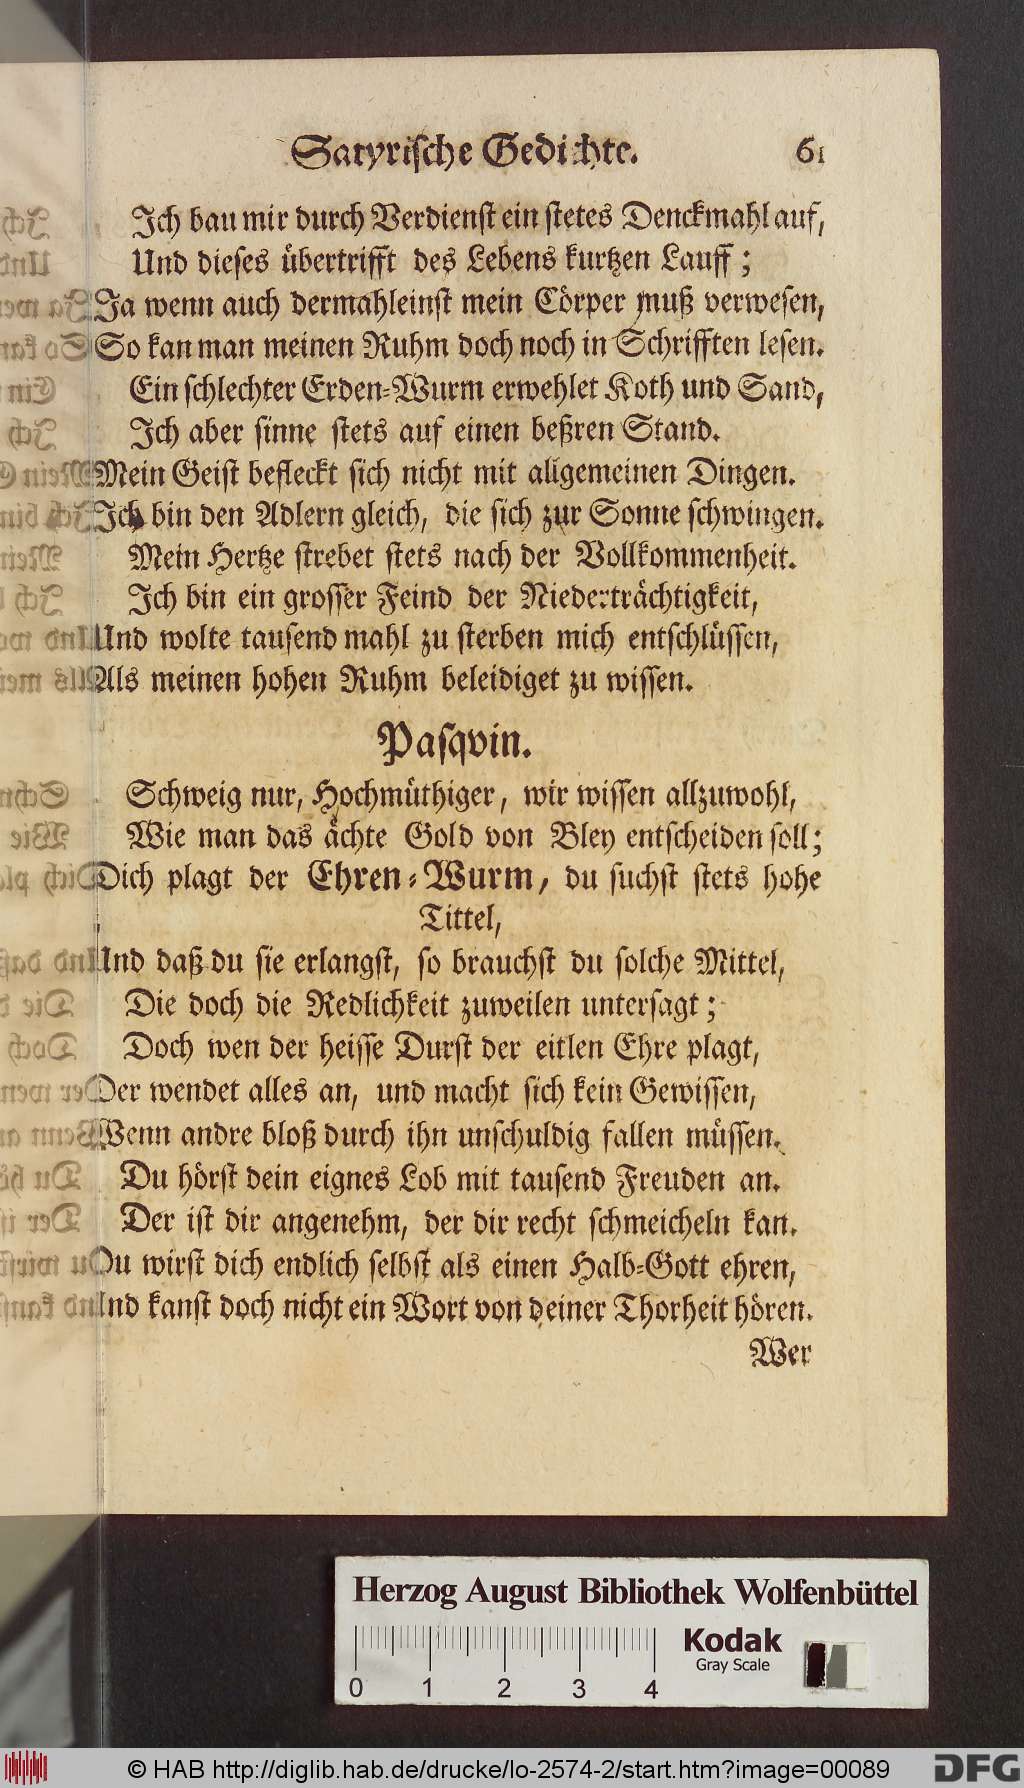 Satyrische Gedichte. 61
Ich bau mir durch Verdienst ein stetes Denckmahl auf,
Und dieses übertrifft des Lebens kurtzen Lauff;
Ja wenn auch dermahleinst mein Cörper muß verwesen,
So kan man meinen Ruhm doch noch in Schrifften lesen.
Ein schlechter Erden-Wurm erwehlet Koth und Sand,
Ich aber sinne stets auf einen beßren Stand.
Mein Geist befleckt sich nicht mit allgemeinen Dingen.
Ich bin den Adlern gleich, die sich zur Sonne schwingen.
Mein Hertze strebet stets nach der Vollkommenheit.
Ich bin ein grosser Feind der Niederträchtigkeit,
Und wolte tausend mahl zu sterben mich entschlüssen,
Als meinen hohen Ruhm beleidiget zu wissen.
Pasqvin.
Schweig nur, Hochmüthiger, wir wissen allzuwohl,
Wie man das ächte Gold von Bley entscheiden soll;
Dich plagt der Ehren-Wurm, du suchst stets hohe
Tittel,
Und daß du sie erlangst, so brauchst du solche Mittel,
Die doch die Redlichkeit zuweilen untersagt;
Doch wen der heisse Durst der eitlen Ehre plagt,
Der wendet alles an, und macht sich kein Gewissen,
Wenn andre bloß durch ihn unschuldig fallen müssen.
Du hörst dein eignes Lob mit tausend Freuden an.
Der ist dir angenehm, der dir recht schmeicheln kan.
Du wirst dich endlich selbst als einen Halb-Gott ehren,
Und kanst doch nicht ein Wort von deiner Thorheit hören.
Wer
Herzog August Bibliothek Wolfenbüttel
Kodak
Gray Scale
0 1 2 3 4
© HAB http://diglib.hab.de/drucke/lo-2574-2/start.htm?image=00089
DFG